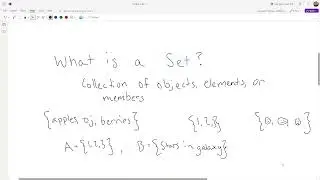 What is a Set?
Collection of objects, elements, or
members
{apples, oj, berries} {1,2,3} {☺, ☹, ☺}
A={1,2,3}, B={Stars in galaxy}